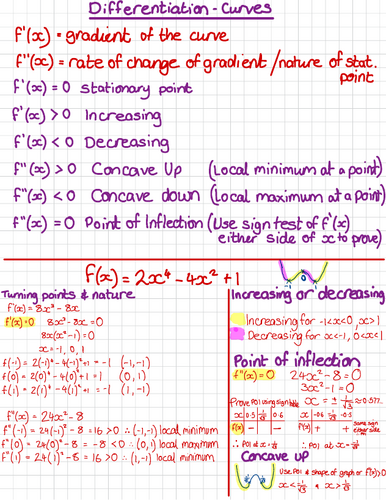 Differentiation - Curves
f'(x) = gradient of the curve
f''(x) = rate of change of gradient /nature of stat. point
f'(x) = 0 Stationary point
f'(x) > 0 Increasing
f'(x) < 0 Decreasing
f''(x) > 0 Concave Up (Local minimum at a point)
f''(x) < 0 Concave down (Local maximum at a point)
f''(x) = 0 Point of Inflection (Use sign test of f'(x)
either side of x to prove)
f(x) = 2x⁴ - 4x² + 1
Turning points & nature
f'(x) = 8x³ - 8x
f'(x) = 0 8x³ - 8x = 0
8x(x² - 1) = 0
x = -1, 0, 1
f(-1) = 2(-1)⁴ - 4(-1)² + 1 = -1 (-1, -1)
f(0) = 2(0)⁴ - 4(0) + 1 = 1 (0, 1)
f(1) = 2(1)⁴ - 4(1)² + 1 = -1 (1, -1)
f''(x) = 24x² - 8
f''(-1) = 24(-1)² - 8 = 16 > 0 ∴ (-1, -1) local minimum
f''(0) = 24(0)² - 8 = -8 < 0 ∴ (0, 1) local maximum
f''(1) = 24(1)² - 8 = 16 > 0 ∴ (1, -1) local minimum
-1 0 1
Increasing or decreasing
Increasing for -1 < x < 0, x > 1
Decreasing for x < -1, 0 < x < 1
Point of inflection
f''(x) = 0 24x² - 8 = 0
3x² - 1 = 0
Prove POI using sign table x = ± 1/√3 ≈ ± 0.577..
x 0.5 1/√3 0.6 x -0.6 -1/√3 -0.5
f'(x) - - f'(x) + + same sign either side
∴ POI at x = 1/√3 ∴ POI at x = -1/√3
Concave up
Use POI & shape of graph or f''(x) > 0
x < -1/√3 & x > 1/√3